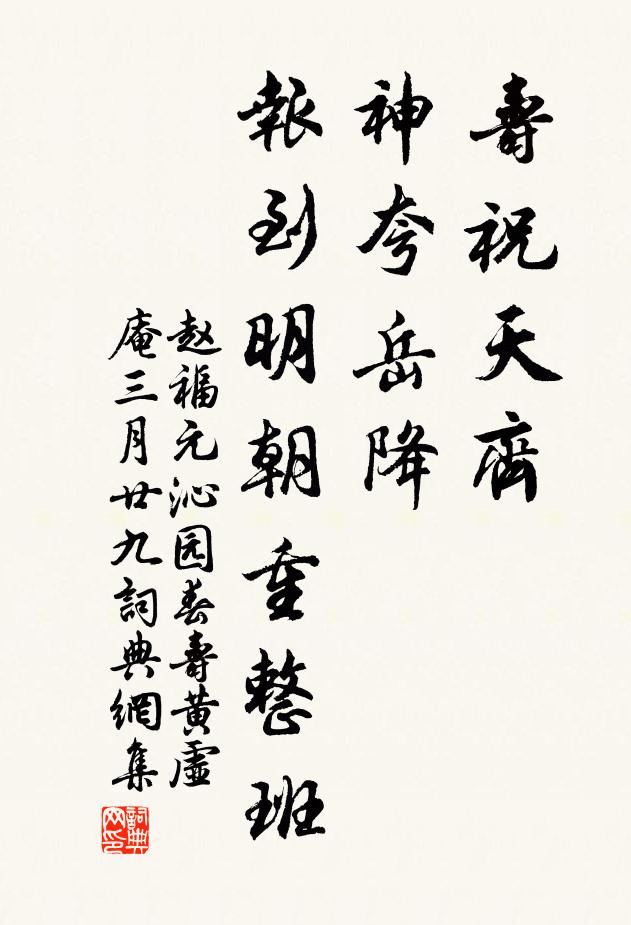 壽祝天齊
神夸岳降
報到明朝重整班
赵福元沁园春壽黄虛
庵三月廿九詞典網集
詞典
网印